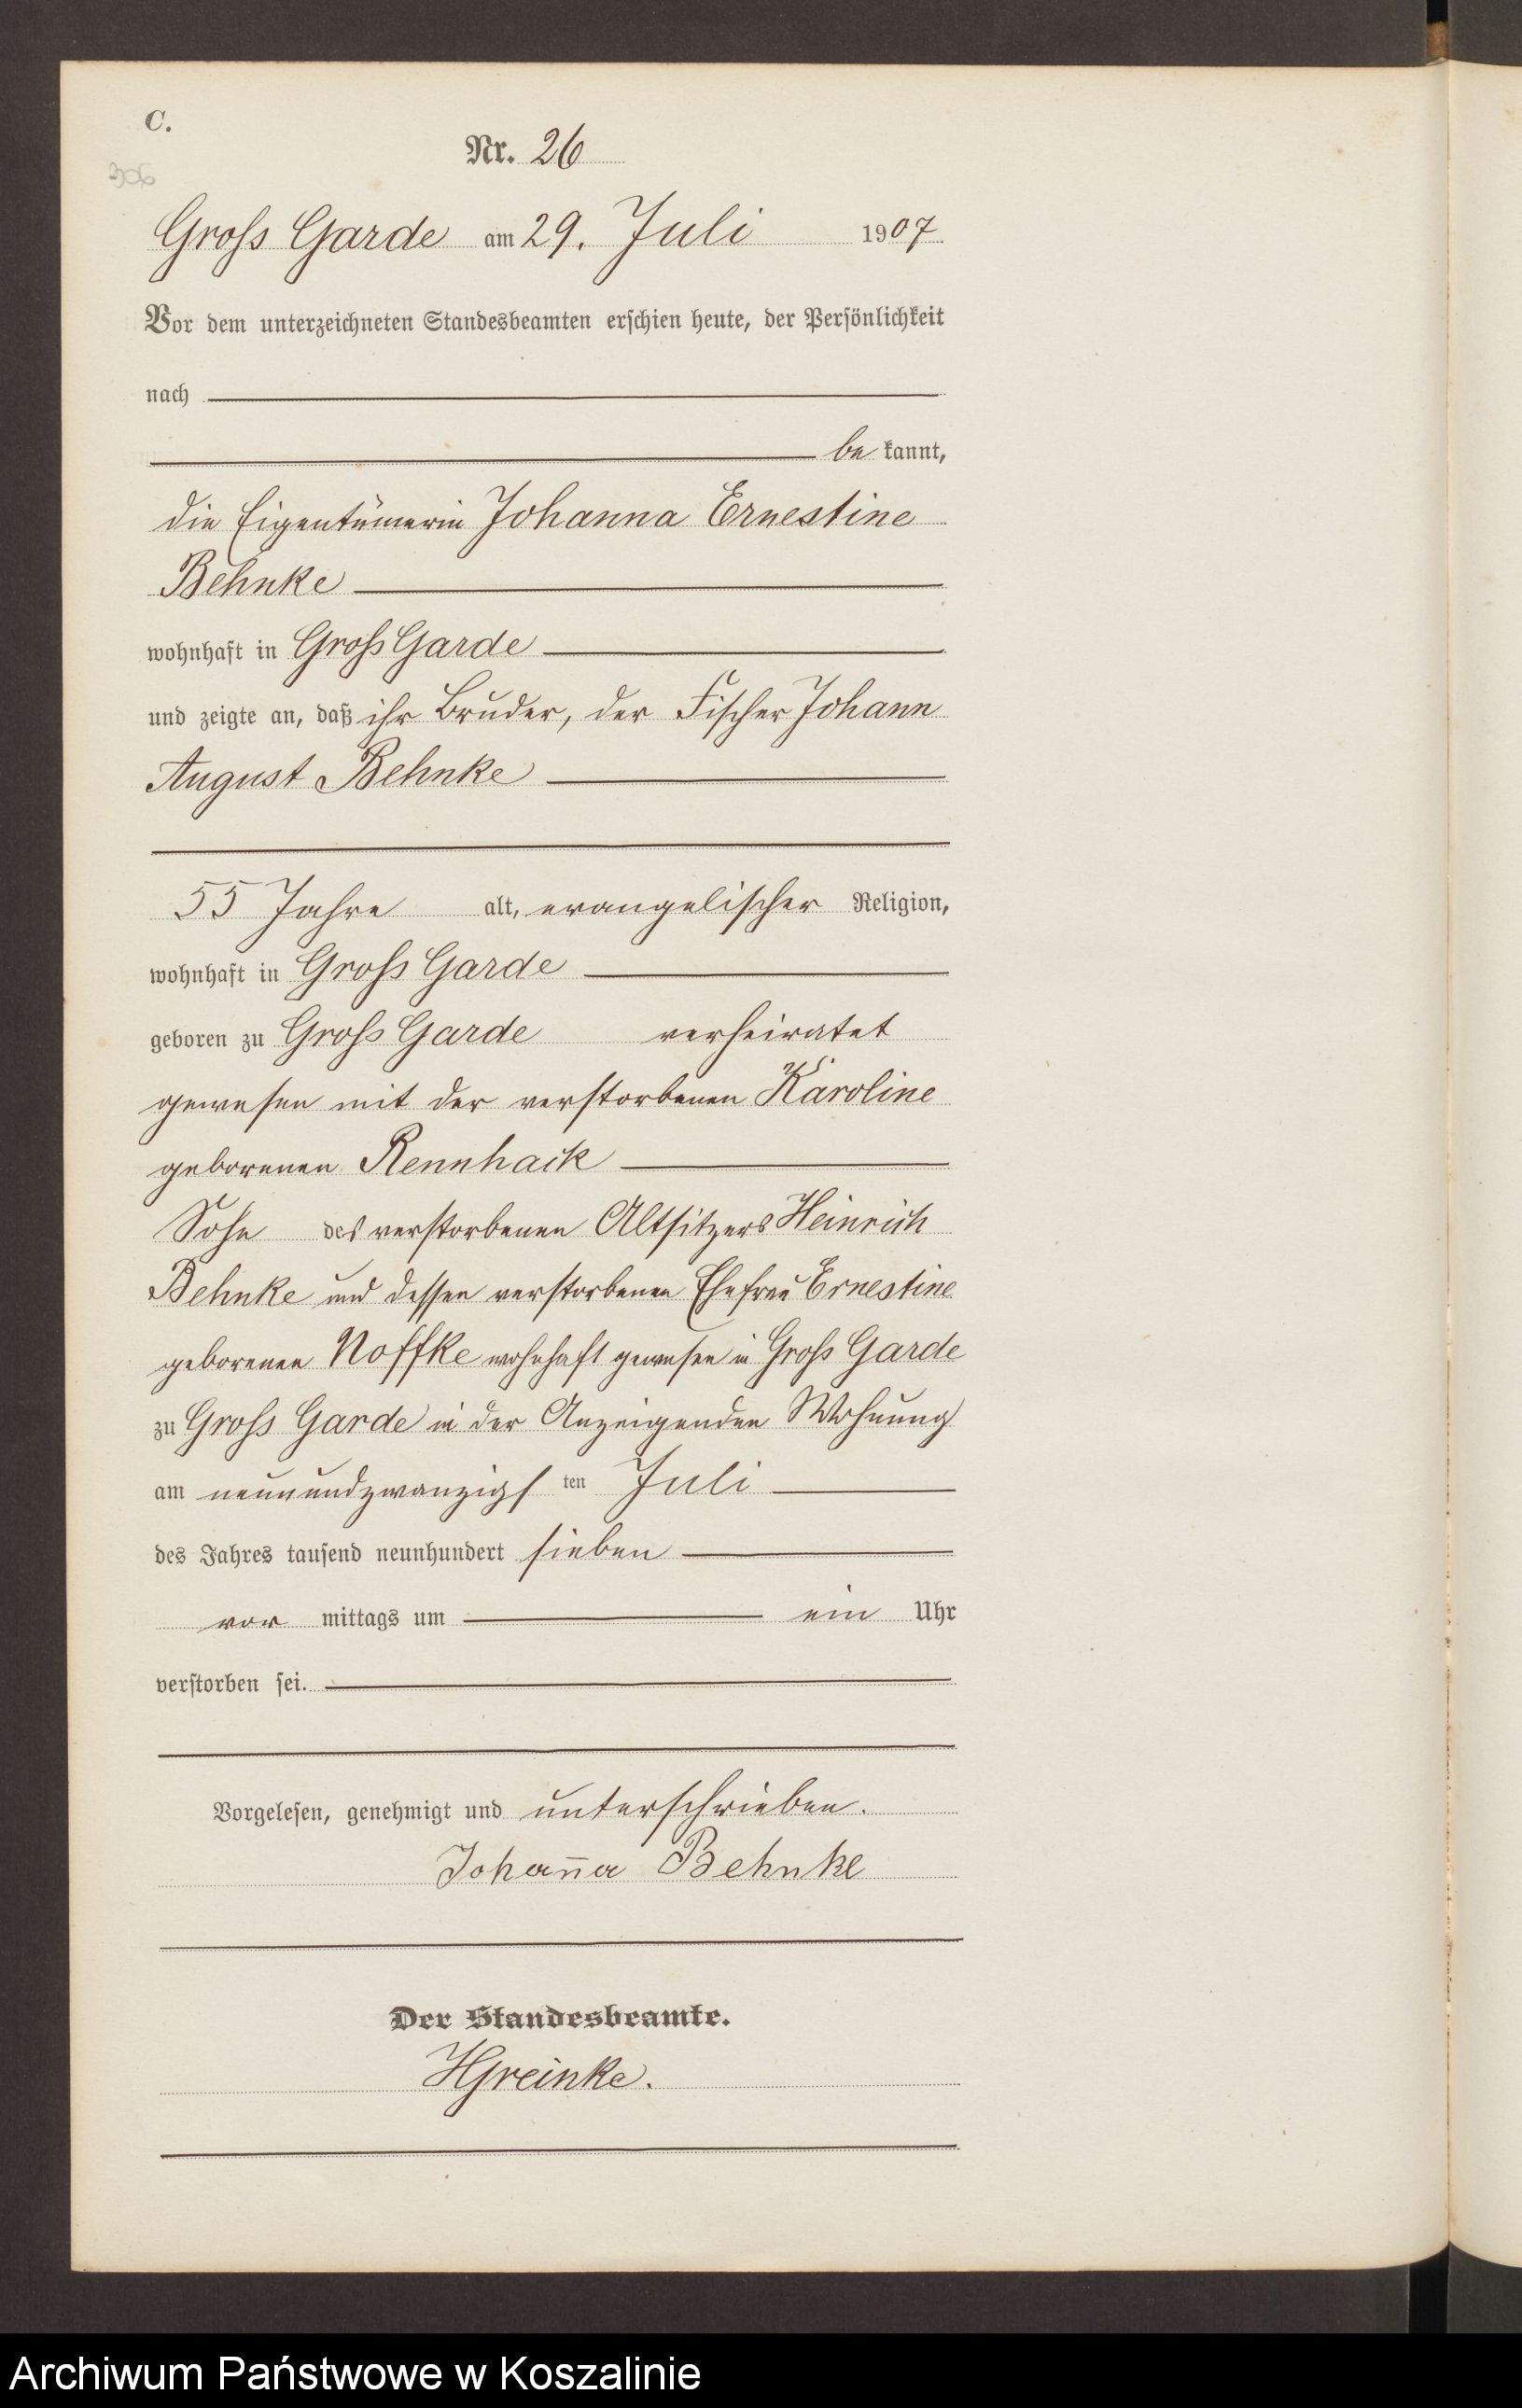 C.
Nr. 26
306
Gross Garde am 29. Juli 1907
Vor dem unterzeichneten Standesbeamten erschien heute, der Persönlichkeit
nach
be kannt,
die Eigentümerin Johanna Ernestine
Behnke
wohnhaft in Gross Garde
und zeigte an, daß ihr Bruder, der Fischer Johann
August Behnke
55 Jahre alt, evangelischer Religion,
wohnhaft in Gross Garde
geboren zu Gross Garde verheiratet
gewesen mit der verstorbenen Karoline
geborenen Rennhack
Sohn des verstorbenen Altsitzers Heinrich
Behnke und dessen verstorbenen Ehefrau Ernestine
geborenen Noffke wohnhaft gewesen in Gross Garde
zu Gross Garde in der Anzeigenden Wohnung
am neunundzwanzigs ten Juli
des Jahres tausend neunhundert sieben
vor mittags um ein Uhr
verstorben sei.
Vorgelesen, genehmigt und unterschrieben.
Johan̄a Behnke
Der Standesbeamte.
HGreinke.
Archiwum Państwowe w Koszalinie